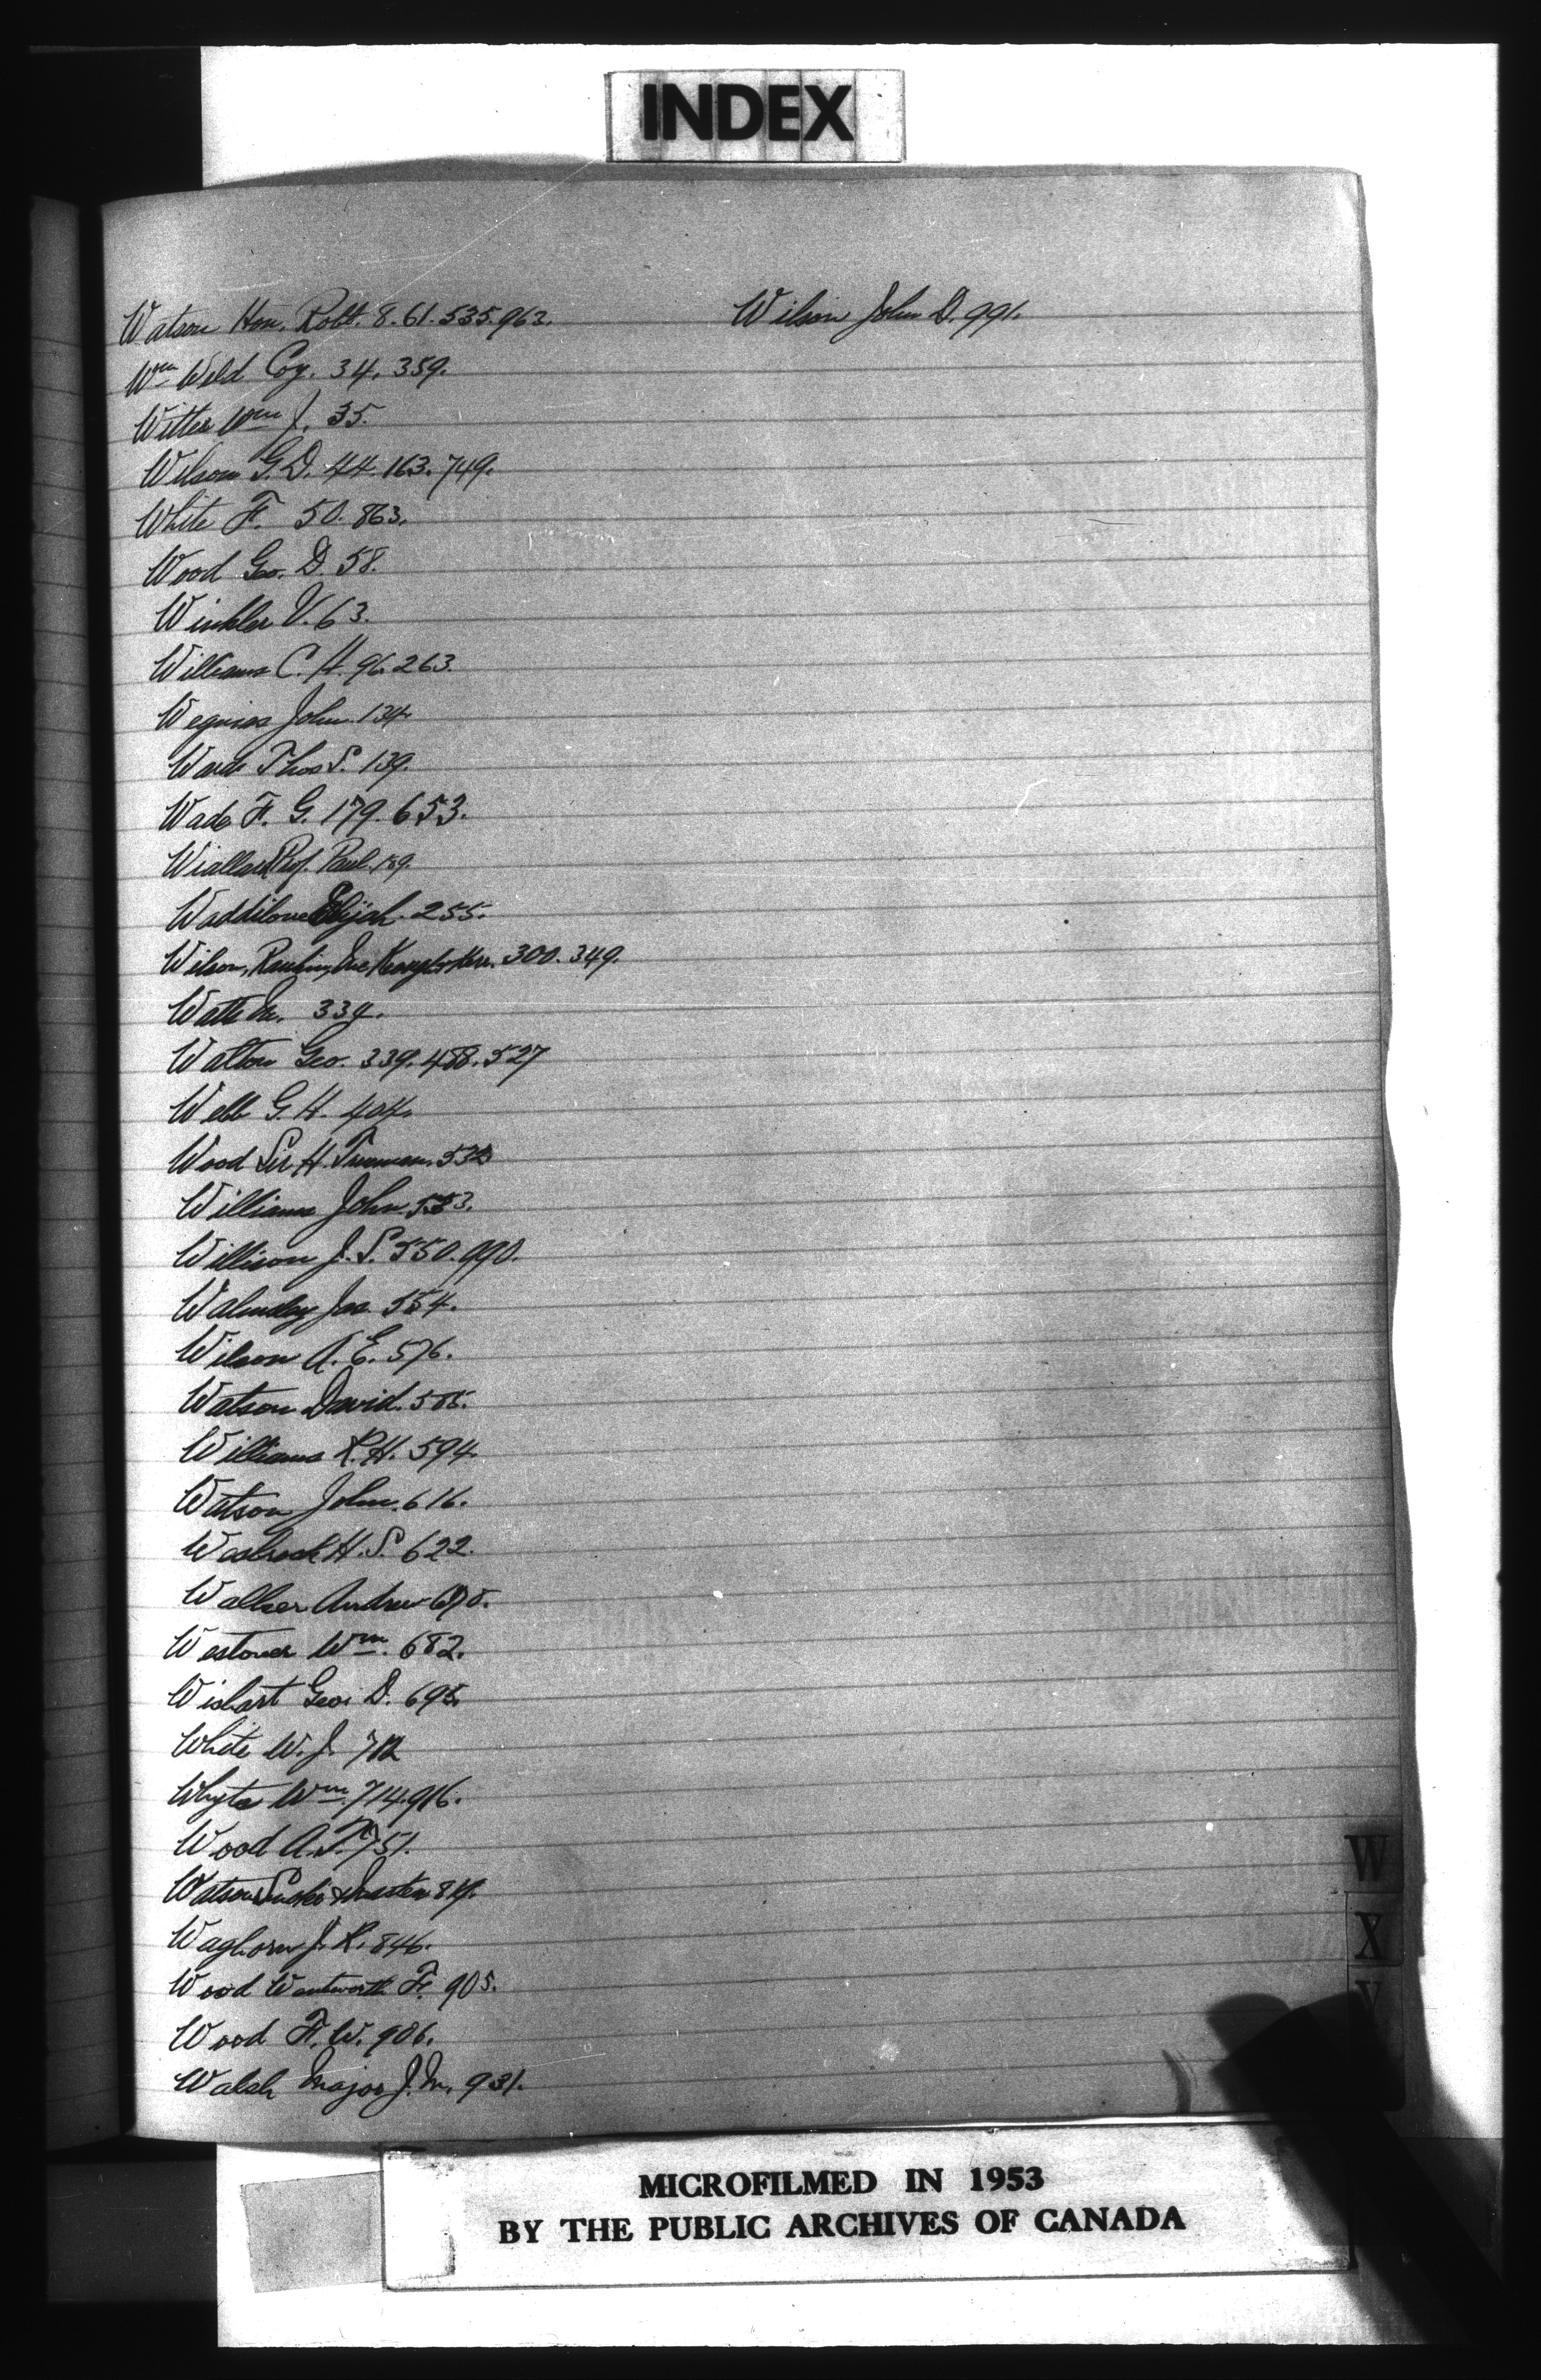 INDEX
Watson Hon. Robt. 8. 61. 535. 963.
Wm Weld Coy. 34. 359.
Witter Wm J. 35.
Wilson G. D. 44. 163. 749.
White F. 50. 863.
Wood Geo. D. 58.
Winkler V. 63.
Williams C. H. 96. 263.
John. 134.
Ward Thos S. 139.
Wade F. G. 179. 653.
Wiallard Prof. Paul. 189.
Waddilove Elijah. 255.
Wilson, 300. 349.
Watt 339.
Walton Geo. 339. 488. 527
Webb G. H. 404.
Wood Sir H. Trueman.
Williams John. 553.
Willison J. S. 550. 990.
Walmsley Jas. 554.
Wilson A. E. 576.
Watson David. 585.
Williams R. H. 594.
Watson John. 616.
Wesbrook H. S. 622.
Walker Andrew 670.
Westover Wm. 682.
Wishart Geo. D. 695.
White W. J. 712
Whyte Wm. 714. 916.
Wood A. T. 751.
Watson Smoke &
Waghorn J. R. 846.
Wood Wentworth F. 905.
Wood F. W. 906.
Walsh Major J. M. 931.
Wilson John D. 991.
W
X
Y
MICROFILMED IN 1953
BY THE PUBLIC ARCHIVES OF CANADA